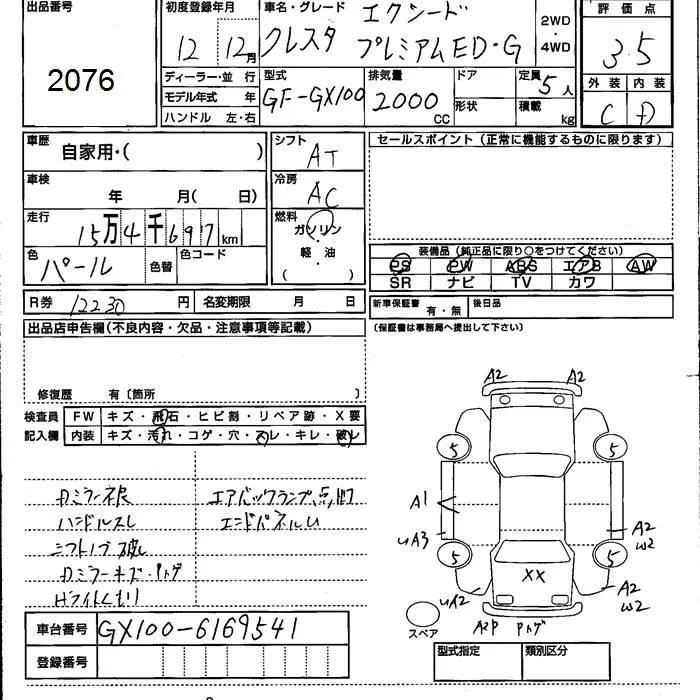 出品番号
2076
初度登録年月
12 12月
車名・グレード エクシード
クレスタ プレミアムED・G
2WD
・
4WD
評価点
3.5
外装 内装
C D
ディーラー・並行
モデル年式 年
ハンドル 左・右
型式
GF-GX100
排気量
2000
CC
ドア
形状
定員 5人
積載 kg
車歴
自家用・( )
シフト
AT
セールスポイント(正常に機能するものに限ります)
車検
年 月( 日)
冷房
AC
走行
15万4千697km
燃料
ガソリン
・
軽・油
( )
色
パール
色替
色コード
装備品(純正品に限り○をつけてください)
PS PW ABS エアB AW
SR ナビ TV カワ
R券 12230円 名変期限 月 日
新車保証書 有・無 後日品
(保証書は事務局へ提出して下さい)
出品店申告欄(不良内容・欠品・注意事項等記載)
修復歴 有〔箇所 〕
検査員
記入欄
FW キズ・飛石・ヒビ割・リペア跡・X要
内装 キズ・汚れ・コゲ・穴・スレ・キレ・破レ
エアバックランプ点灯
ハンドルスレ
エンドパネルU
シフトノブ破レ
車台番号 GX100-6169541
登録番号
A2 A2
5 5
A1
UA3
A2
W2
5 5
XX
UA2
A2
W2
スペア
A2P
型式指定 類別区分